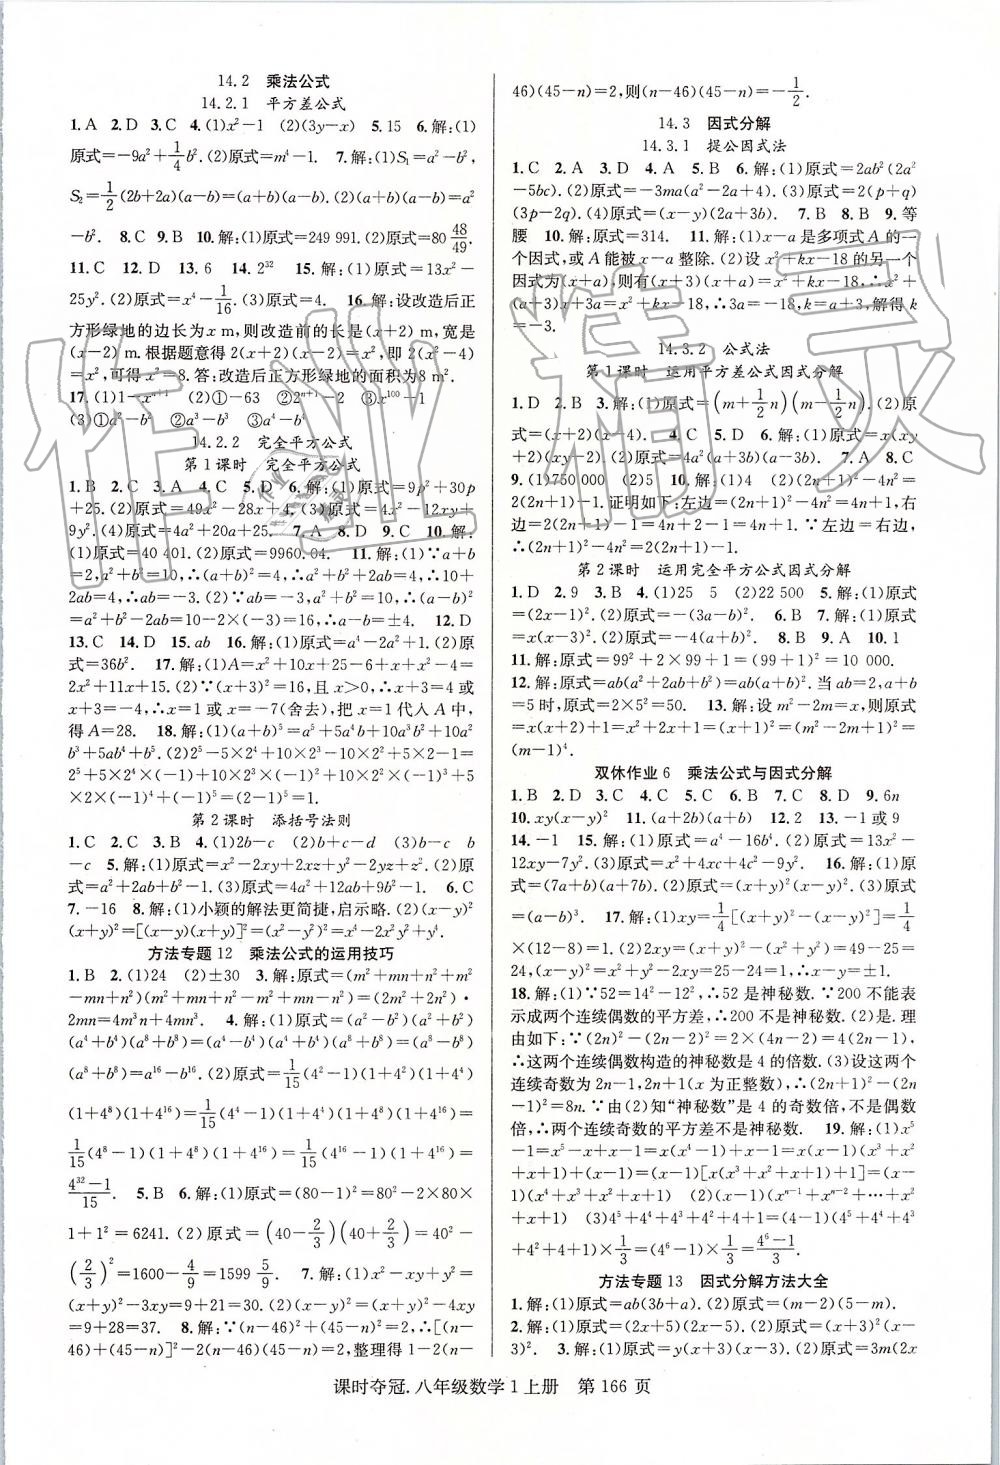 14.2 乘法公式
14.2.1 平方差公式
1.A 2.D 3.C 4.(1)x²-1 (2)(3y-x) 5.15 6.解:(1)
原式=-9a²+1/4b².(2)原式=m⁴-1. 7.解:(1)S₁=a²-b²,
S₂=1/2(2b+2a)(a-b)=(a+b)(a-b).(2)(a+b)(a-b)=a²
-b². 8.C 9.B 10.解:(1)原式=249 991.(2)原式=80 48/49.
11.C 12.D 13.6 14.2³² 15.解:(1)原式=13x²-
25y².(2)原式=x⁴-1/16.(3)原式=-2a. 16.解:设改造后正
方形绿地的边长为x m,则改造前的长是(x+2) m,宽是
(x-2) m.根据题意得2(x+2)(x-2)=x²,即2(x²-4)
=x²,可得x²=8.答:改造后正方形绿地的面积为8 m².
17.(1)1-xⁿ⁺¹ (2)①-63 ②2ⁿ⁺¹-2 ③x¹⁰⁰-1
(3)①a²-b² ②a³-b³ ③a⁴-b⁴
14.2.2 完全平方公式
第1课时 完全平方公式
1.B 2.C 3.A 4.C 5.D 6.解:(1)原式=9p²+30p
+25.(2)原式=49x²-28x+4.(3)原式=4x²-12xy+
9y².(4)原式=4a²+20a+25. 7.A 8.D 9.C 10.解:
(1)原式=40 401.(2)原式=9960.04. 11.解:(1)∵a+b
=2,a²+b²=10,∴(a+b)²=4,∴a²+b²+2ab=4,∴10+
2ab=4,∴ab=-3.(2)由(1)知ab=-3,∴(a-b)²
=a²+b²-2ab=10-2×(-3)=16,∴a-b=±4. 12.D
13.C 14.D 15.ab 16.解:(1)原式=a⁴-2a²+1.(2)原
式=36b². 17.解:(1)A=x²+10x+25-6+x+x²-4=
2x²+11x+15.(2)∵(x+3)²=16,且x>0,∴x+3=4或
x+3=-4,∴x=1或x=-7(舍去),把x=1代入A中,
得A=28. 18.解:(1)(a+b)⁵=a⁵+5a⁴b+10a³b²+10a²
b³+5ab⁴+b⁵.(2)2⁵-5×2⁴+10×2³-10×2²+5×2-1=
2⁵+5×2⁴×(-1)+10×2³×(-1)²+10×2²×(-1)³+5
×2×(-1)⁴+(-1)⁵=(2-1)⁵=1.
第2课时 添括号法则
1.C 2.C 3.B 4.(1)2b-c (2)b+c-d (3)b-c b
-c 5.解:(1)原式=x²-2xy+2xz+y²-2yz+z².(2)原式
=a²+2ab+b²-1.(3)原式=4a²+12ab+9b²-1. 6.C
7.-16 8.解:(1)小颖的解法更简捷,启示略.(2)(x-y)²
(x+y)²=[(x-y)(x+y)]²=(x²-y²)²=x⁴-2x²y²+y⁴.
方法专题12 乘法公式的运用技巧
1.B 2.(1)24 (2)±30 3.解:原式=(m²+mn+n²+m²
-mn+n²)(m²+mn+n²-m²+mn-n²)=(2m²+2n²)·
2mn=4m³n+4mn³. 4.解:(1)原式=(a²-b²)(a²+b²)
(a⁴+b⁴)(a⁸+b⁸)=(a⁴-b⁴)(a⁴+b⁴)(a⁸+b⁸)=(a⁸-b⁸)
(a⁸+b⁸)=a¹⁶-b¹⁶.(2)原式=1/15(4²-1)(1+4²)(1+4⁴)
(1+4⁸)(1+4¹⁶)=1/15(4⁴-1)(1+4⁴)(1+4⁸)(1+4¹⁶)=
1/15(4⁸-1)(1+4⁸)(1+4¹⁶)=1/15(4¹⁶-1)(1+4¹⁶)=
(4³²-1)/15. 5.B 6.解:(1)原式=(80-1)²=80²-2×80×
1+1²=6241.(2)原式=(40-2/3)(40+2/3)=40²-
(2/3)²=1600-4/9=1599 5/9. 7.解:(1)x²-xy+y²=
(x+y)²-3xy=9+21=30.(2)(x-y)²=(x+y)²-4xy
=9+28=37. 8.解:∵(n-46)²+(45-n)²=2,∴[(n-
46)+(45-n)]²-2(n-46)(45-n)=2,整理得1-2(n-
46)(45-n)=2,则(n-46)(45-n)=-1/2.
14.3 因式分解
14.3.1 提公因式法
1.C 2.D 3.D 4.A 5.B 6.解:(1)原式=2ab²(2a²
-5bc).(2)原式=-3ma(a²-2a+4).(3)原式=2(p+q)
(3p-2q).(4)原式=(x-y)(2a+3b). 7.B 8.B 9.等
腰 10.解:原式=314. 11.解:(1)x-a是多项式A的一
个因式,或A能被x-a整除.(2)设x²+kx-18的另一个
因式为(x+a),则有(x+3)(x+a)=x²+kx-18,∴x²+
(a+3)x+3a=x²+kx-18,∴3a=-18,k=a+3,解得k
=-3.
14.3.2 公式法
第1课时 运用平方差公式因式分解
1.D 2.B 3.解:(1)原式=(m+1/2n)(m-1/2n).(2)原
式=(x+2)(x-4). 4.C 5.C 6.解:(1)原式=x(xy
+2)(xy-2).(2)原式=2(a+3b)(a-3b). 7.A 8.C
9.(1)750 000 (2)5 10.解:(1)4 (2)(2n+1)²-4n²=
2(2n+1)-1.证明如下:左边=(2n+1)²-4n²=4n+1,右
边=2(2n+1)-1=4n+2-1=4n+1.∵左边=右边,
∴(2n+1)²-4n²=2(2n+1)-1.
第2课时 运用完全平方公式因式分解
1.D 2.9 3.B 4.(1)25 5 (2)22 500 5.解:(1)原式
=(2x-1)².(2)原式=-(3a-b)². 6.B 7.解:(1)原式
=x(x-3)².(2)原式=(x+y-2)². 8.B 9.A 10.1
11.解:原式=99²+2×99×1+1=(99+1)²=10 000.
12.解:原式=ab(a²+2ab+b²)=ab(a+b)².当ab=2,a+b
=5时,原式=2×5²=50. 13.解:设m²-2m=x,则原式
=x(x+2)+1=x²+2x+1=(x+1)²=(m²-2m+1)²=
(m-1)⁴.
双休作业6 乘法公式与因式分解
1.B 2.D 3.C 4.B 5.C 6.B 7.C 8.D 9.6n
10.xy(x-y)² 11.(a+2b)(a+b) 12.2 13.-1或9
14.-1 15.解:(1)原式=a⁴-16b⁴.(2)原式=13x²-
12xy-7y².(3)原式=x²+4xz+4z²-9y². 16.解:(1)原
式=(7a+b)(a+7b).(2)原式=(x+y)²(x-y)².(3)原式
=(a-b)³. 17.解:(1)xy=1/4[(x+y)²-(x-y)²]=1/4
×(12-8)=1.(2)(x-y)²=(x+y)²-4xy=49-25=
24,(x-y)²=x²+y²-2xy=25-24=1,∴x-y=±1.
18.解:(1)∵52=14²-12²,∴52是神秘数.∵200不能表
示成两个连续偶数的平方差,∴200不是神秘数.(2)是.理
由如下:∵(2n)²-(2n-2)²=2(4n-2)=4(2n-1),
∴这两个连续偶数构造的神秘数是4的倍数.(3)设这两个
连续奇数为2n-1,2n+1(x为正整数),∴(2n+1)²-(2n
-1)²=8n.∵由(2)知“神秘数”是4的奇数倍,不是偶数
倍,∴两个连续奇数的平方差不是神秘数. 19.解:(1)x⁵
-1=x⁵-x+x-1=x(x⁴-1)+x-1=x(x-1)(x³+x²
+x+1)+(x-1)=(x-1)[x(x³+x²+x+1)+1]=(x-
1)(x⁴+x³+x²+x+1) (2)(x-1)(xⁿ⁻¹+xⁿ⁻²+…+x²
+x+1) (3)4⁵+4⁴+4³+4²+4+1=(4-1)(4⁵+4⁴+4³
+4²+4+1)×1/3=(4⁶-1)×1/3=(4⁶-1)/3.
方法专题13 因式分解方法大全
1.解:(1)原式=ab(3b+a).(2)原式=(m-2)(5-m).
2.解:(1)原式=(2x+5)(2x-5).(2)原式=(x+3)²(x-
3)². 3.解:(1)原式=y(x+3)(x-3).(2)原式=3m(2x
课时夺冠.八年级数学1上册 第166页